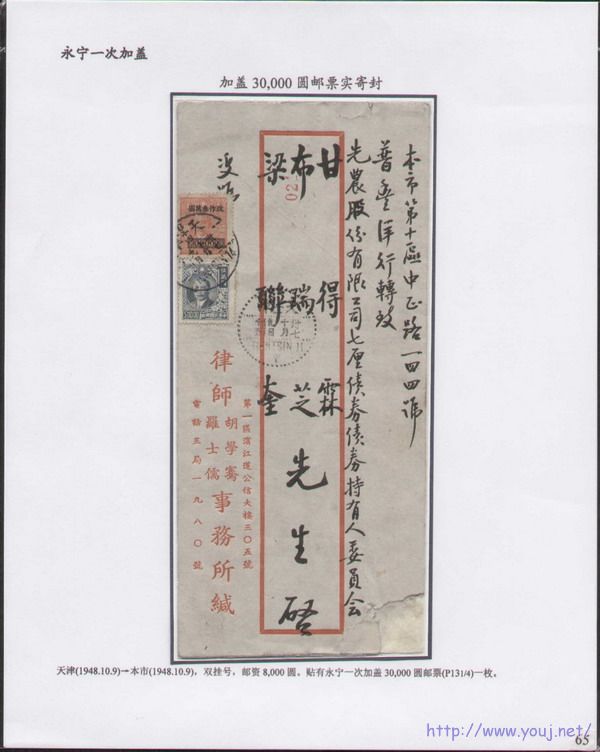 永宁一次加盖
加盖 30,000 圆邮票实寄封
本市第十區中正路一四四號
普豐洋行轉致
先農股份有限公司七厘债券债券持有人委員会
甘得霖
布瑞芝
梁聯奎
先生啓
02
改作叁萬圓
TIENTSIN
第一區濱江道公信大樓三〇五號
律師
胡學騫
羅士儒
事務所緘
電話三局一九八〇號
天津(1948.10.9)→本市(1948.10.9)，双挂号，邮资 8,000 圆。贴有永宁一次加盖 30,000 圆邮票(P131/4)一枚。
65
http://www.youj.net/